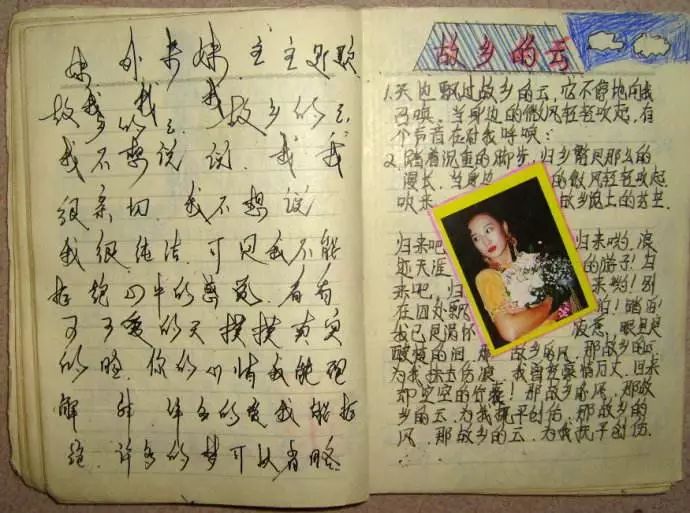 妹 外来妹. 主主题歌
故我 我 我 故乡的云
我不想说 说. 我 我
很亲切. 我不想说
我很纯洁. 可是我不能
拒绝心中的感觉. 看看
可可爱的天 摸摸真实
的脸. 你的心情我能理
解 许. 许多的爱我能拒
绝. 许多的梦可以省略
故乡的云
1.天边飘过故乡的云,它不停地向我
召唤. 当身边的微风轻轻吹起,有
个声音在对我呼唤:
2.踏着沉重的脚步,归乡路是那么的
漫长. 当身边 的微风轻轻吹起
吹来 故乡泥土的芬芳.
归来吧 归来哟,浪
迹天涯 的游子!归
来吧,归 来哟!别
在四处飘 泊!
我已是满怀 疲惫,眼里是
酸楚的泪,那 故乡的风,那故乡的云
为我抹去伤痕,我曾豪情万丈,回来
却空空的行囊!那故乡的风,那故
乡的云,为我抚平创伤,那故乡的
风,那故乡的云,为我抚平创伤.